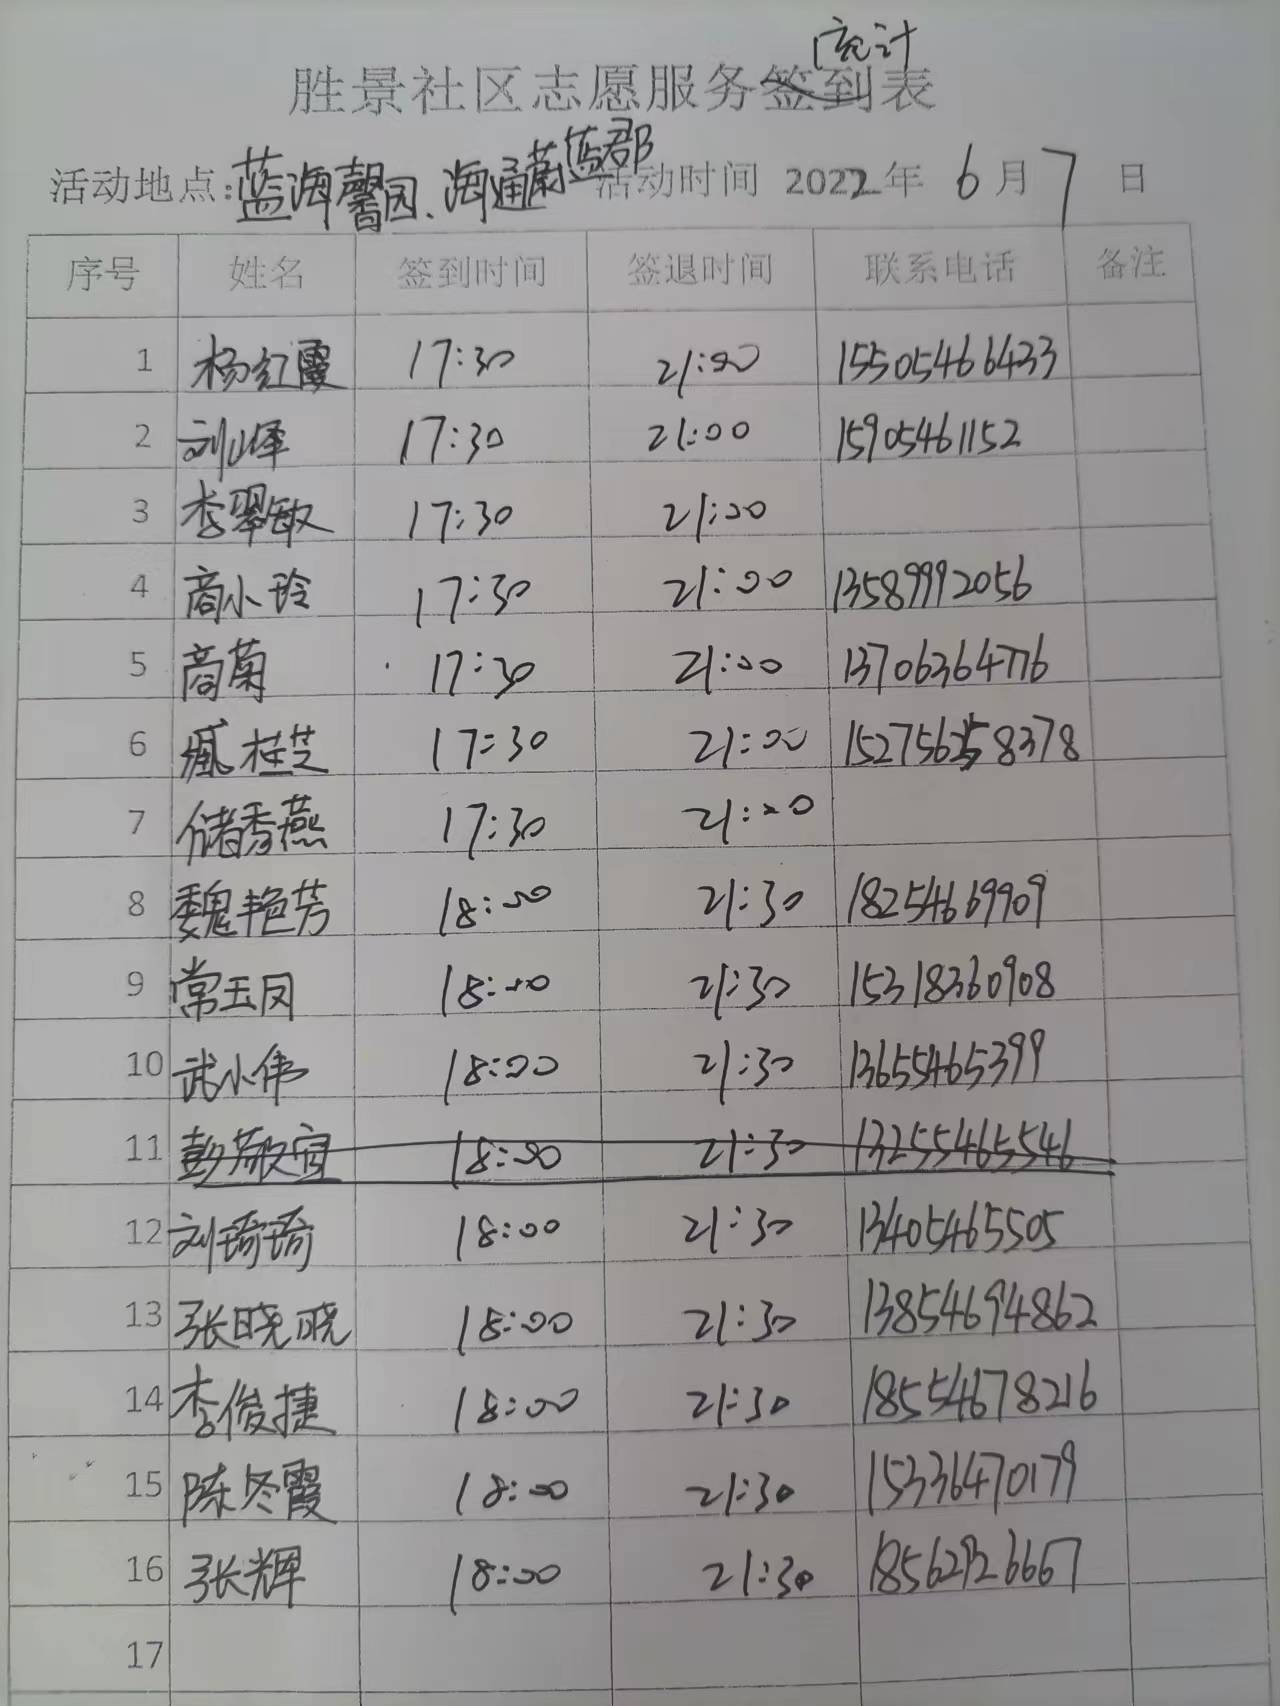 统计
胜景社区志愿服务签到表
活动地点:蓝海馨园、海通蔚蓝郡 活动时间 2022年 6月 7 日
序号 姓名 签到时间 签退时间 联系电话 备注
1 杨红霞 17:30 21:00 15505466433
2 刘峄 17:30 21:00 15905461152
3 李翠敏 17:30 21:00
4 商小玲 17:30 21:00 13589992056
5 商菊 17:30 21:00 13706364776
6 臧桂芝 17:30 21:00 1527562558378
7 储秀燕 17:30 21:00
8 魏艳芳 18:00 21:30 18254669909
9 常玉凤 18:00 21:30 15318360908
10 武小伟 18:00 21:30 13655465399
11 彭敬宜 18:00 21:30 13255465546
12 刘琦琦 18:00 21:30 13405465505
13 张晓晓 18:00 21:30 13854694862
14 李俊捷 18:00 21:30 18554678216
15 陈冬霞 18:00 21:30 15336470179
16 张辉 18:00 21:30 18562926667
17